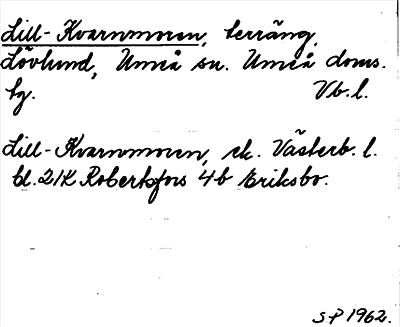 Lill-Kvarnmoren, terräng,
Lövlund, Umeå sn. Umeå doms.
tg. Vb. l.
Lill-Kvarnmoren, ek. Västerb. l.
bl. 21K Robertsfors 4b Eriksbo.
S-P 1962.